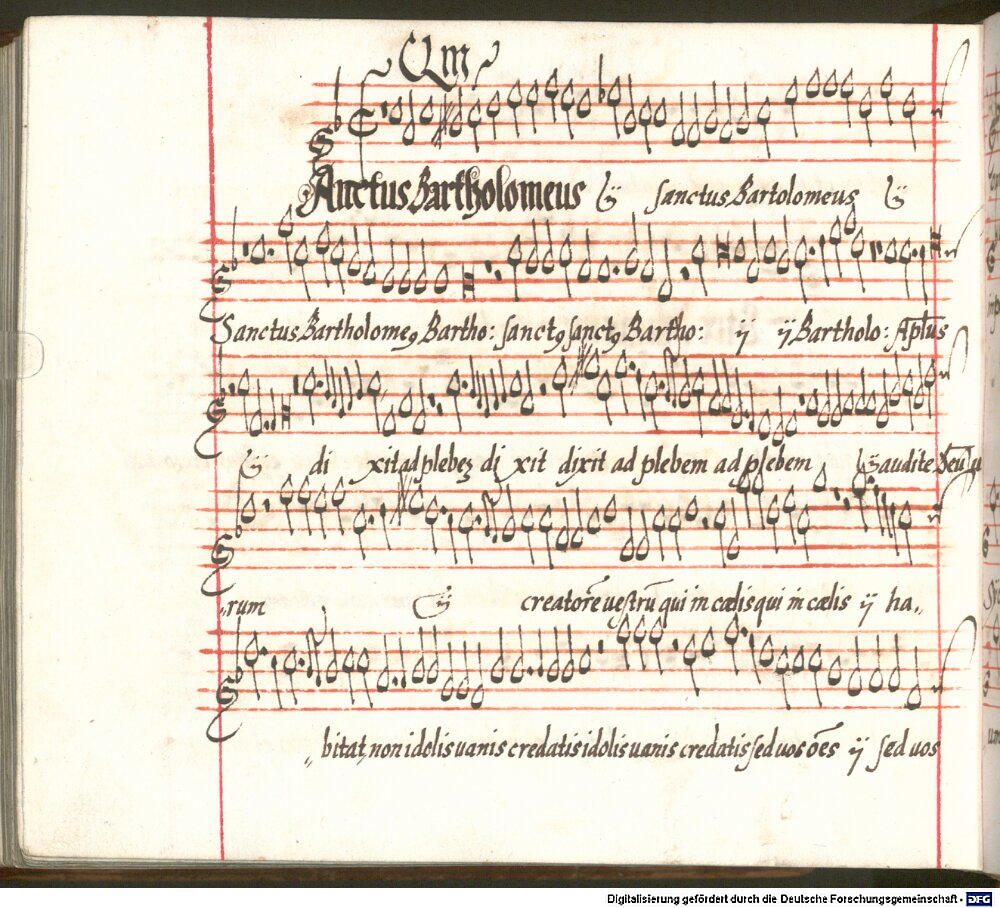 Sanctus Bartholomeus ij sanctus Bartolomeus ij
Sanctus Bartholomeꝰ Bartho: sanctꝰ sanctꝰ Bartho: ij ij Bartholo: Aplus
ij di xit ad plebeȝ di xit dixit ad plebem ad plebem ij audite
„rum ij creatorē uestrū qui in cælis qui in cælis ij ha„
„bitat, non idolis uanis credatis idolis uanis credatis sed uos oēs ij sed uos
Digitalisierung gefördert durch die Deutsche Forschungsgemeinschaft - DFG